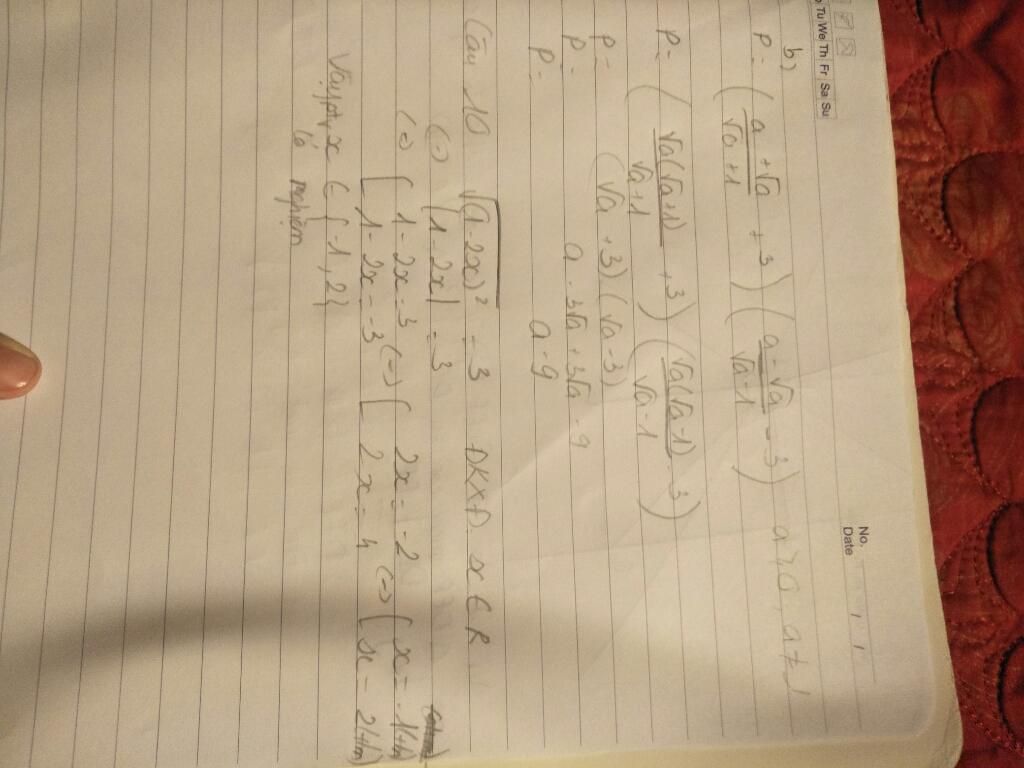 No.
Date
Tu We Th Fr Sa Su
b,
P = (a + √a / √a + 1 + 3) (a - √a / √a - 1 - 3) a ≥ 0, a ≠ 1
P = (√a(√a+1) / √a+1 + 3) (√a(√a-1) / √a-1 - 3)
P = (√a + 3) (√a - 3)
P = a - 3√a + 3√a - 9
P = a - 9
Câu 10 √(1-2x)² = 3 ĐKXĐ: x ∈ R
(=) |1-2x| = 3
(=) [ 1-2x = 3 (=) [ 2x = -2 (=) [ x = -1 (tm)
[ 1-2x = -3 [ 2x = 4 [ x = 2 (tm)
Vậy pt x ∈ {-1, 2}
là nghiệm